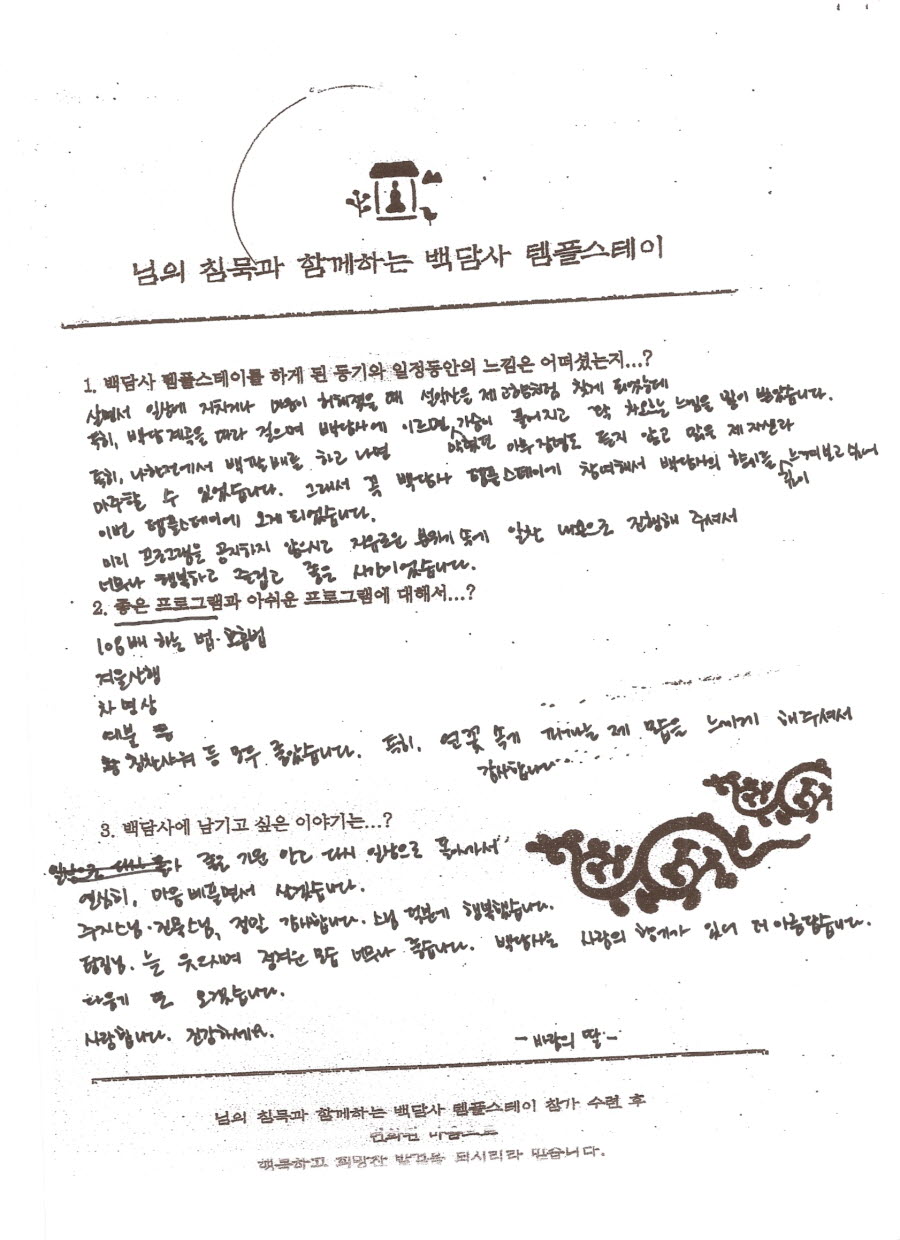 님의 침묵과 함께하는 백담사 템플스테이
1. 백담사 템플스테이를 하게 된 동기와 일정동안의 느낌은 어떠셨는지...?
살면서 일상에 지치거나 마음이 허해졌을 때 설악산을 제 고향처럼 찾게 되었는데
특히, 백담계곡을 따라 걸으며 백담사에 이르면, 가슴이 풀어지고 꽉 차오르는 느낌을 많이 받았습니다.
특히, 나한전에서 백팔배를 하고 나면 아무 잡념도 들지 않고 맑은 제 자신과
마주할 수 있었습니다. 그래서 꼭 백담사 템플스테이에 참여해서 백담사의 향기를 깊이 느껴보고 싶어서
이번 템플스테이에 오게 되었습니다.
미리 프로그램을 공지하지 않으시고 자유로운 분위기 속에 알찬 내용으로 진행해 주셔서
너무나 행복하고 즐겁고 좋은 시간이었습니다.
2. 좋은 프로그램과 아쉬운 프로그램에 대해서...?
108배 하는 법·호흡법
겨울산행
차 명상
예불 등
등 모두 좋았습니다. 특히, 연꽃 속에 피어나는 제 모습을 느끼게 해주셔서
감사합니다
3. 백담사에 남기고 싶은 이야기는...?
좋은 기운 안고 다시 일상으로 돌아가서
열심히, 마음 베풀면서 살겠습니다.
주지스님·진물스님, 정말 감사합니다. 스님 덕분에 행복했습니다.
팀장님. 늘 웃으시며 정겨운 모습 너무나 좋습니다. 백담사는 사람의 향기가 있어 더 아름답습니다.
다음에 또 오겠습니다.
사랑합니다. 건강하세요.
- 바람의 딸 -
님의 침묵과 함께하는 백담사 템플스테이 참가 수련 후
행복하고 희망찬 발걸음 되시리라 믿습니다.